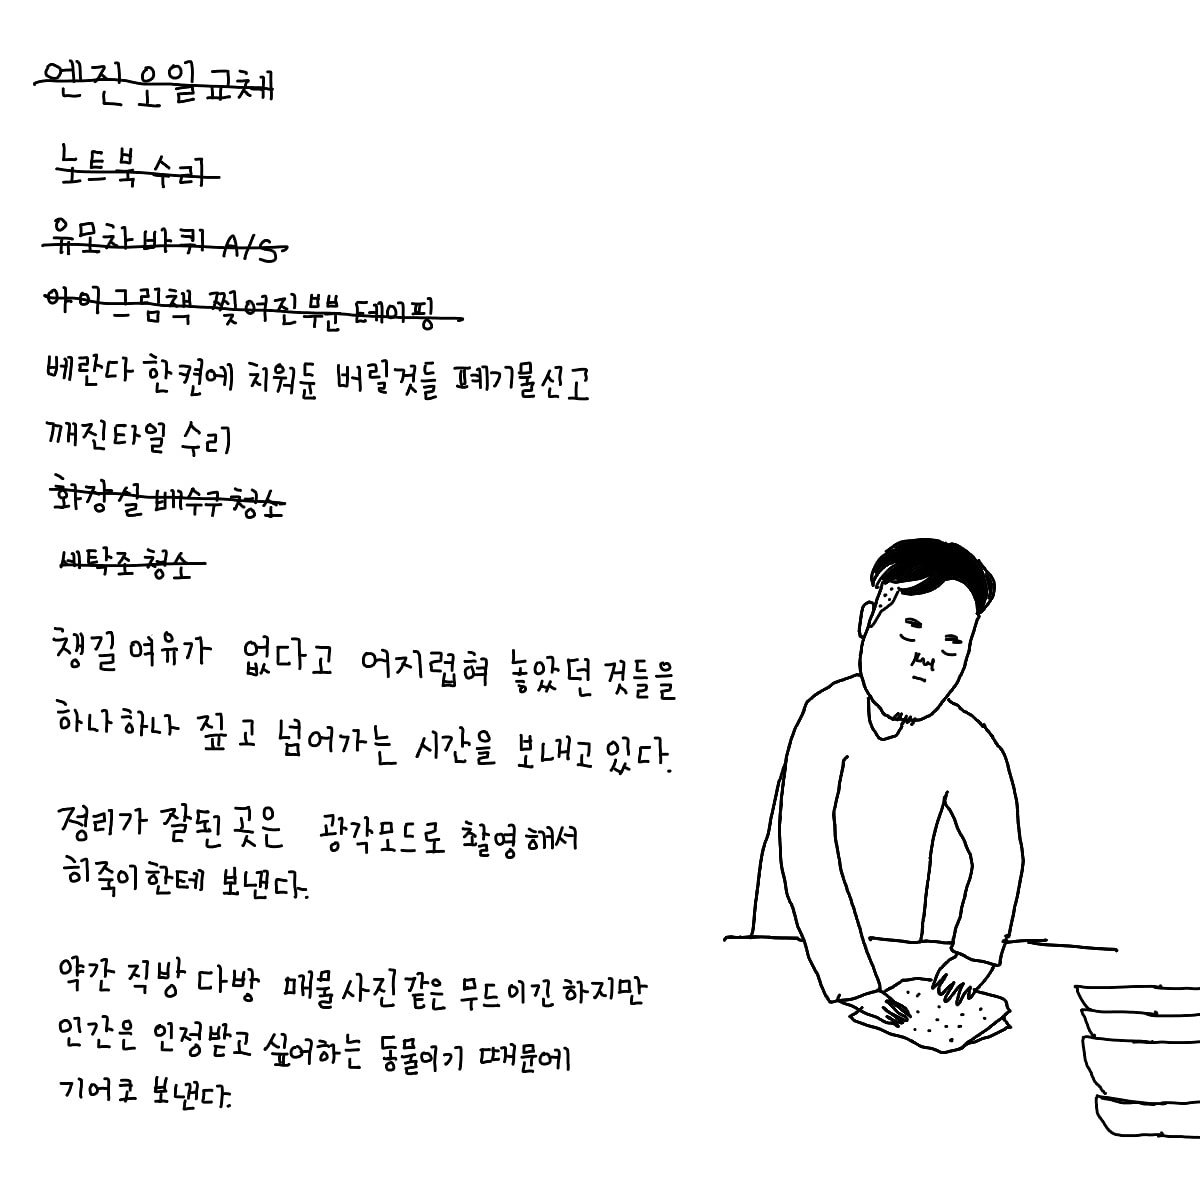 엔진오일교체
노트북 수리
유모차 바퀴 A/S
아이 그림책 찢어진부분 테이핑
베란다 한켠에 치워둔 버릴것들 폐기물신고
깨진타일 수리
화장실 배수구 청소
세탁조 청소
챙길 여유가 없다고 어지럽혀 놓았던 것들을
하나하나 짚고 넘어가는 시간을 보내고 있다.
정리가 잘된 곳은 광각모드로 촬영해서
히죽이한테 보낸다.
약간 직방 다방 매물사진같은 무드이긴 하지만
인간은 인정받고 싶어하는 동물이기 때문에
기어코 보낸다.